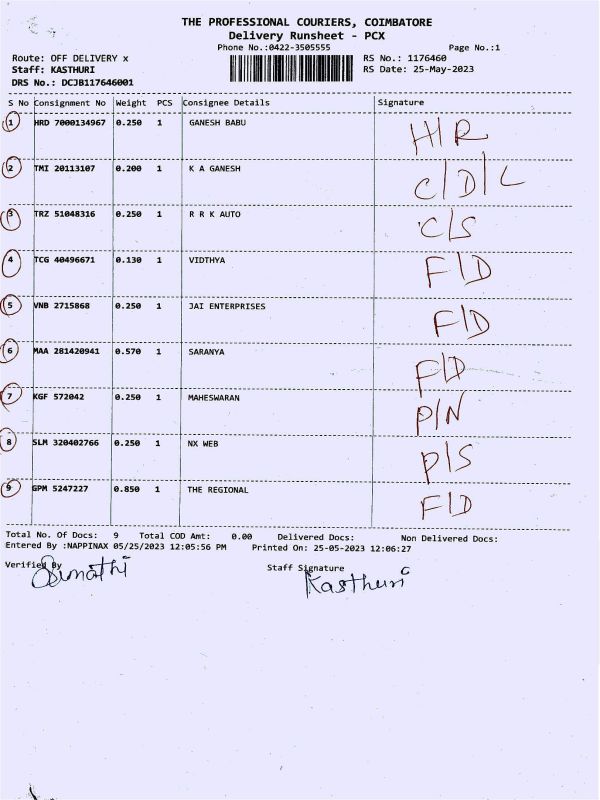 THE PROFESSIONAL COURIERS, COIMBATORE
Delivery Runsheet - PCX
Phone No.:0422-3505555 Page No.:1
Route: OFF DELIVERY x RS No.: 1176460
Staff: KASTHURI RS Date: 25-May-2023
DRS No.: DCJB117646001
S No Consignment No Weight PCS Consignee Details Signature
1 HRD 7000134967 0.250 1 GANESH BABU H/R
2 TMI 20113107 0.200 1 K A GANESH C/D/L
3 TRZ 51048316 0.250 1 R R K AUTO C/S
4 TCG 40496671 0.130 1 VIDTHYA F/D
5 VNB 2715868 0.250 1 JAI ENTERPRISES F/D
6 MAA 281420941 0.570 1 SARANYA F/D
7 KGF 572042 0.250 1 MAHESWARAN P/N
8 SLM 320402766 0.250 1 NX WEB P/S
9 GPM 5247227 0.850 1 THE REGIONAL F/D
Total No. Of Docs: 9 Total COD Amt: 0.00 Delivered Docs: Non Delivered Docs:
Entered By :NAPPINAX 05/25/2023 12:05:56 PM Printed On: 25-05-2023 12:06:27
Verified By Staff Signature
Kasthuri